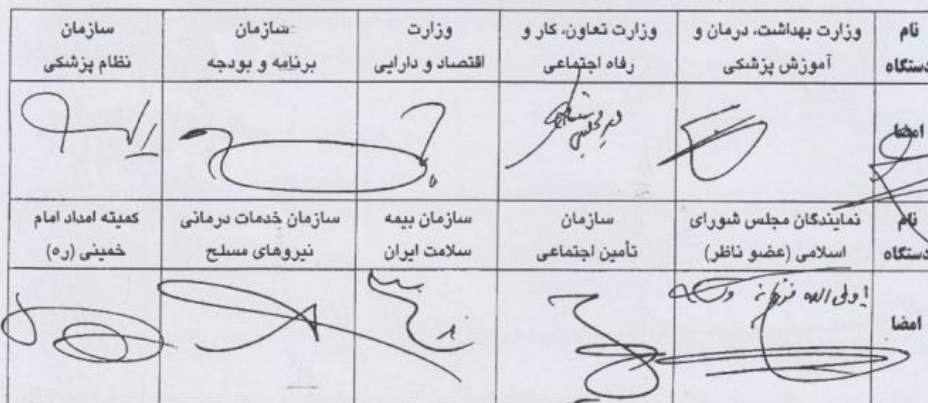 نام
دستگاه
وزارت بهداشت، درمان و
آموزش پزشکی
وزارت تعاون، کار و
رفاه اجتماعی
وزارت
اقتصاد و دارایی
سازمان
برنامه و بودجه
سازمان
نظام پزشکی
امضا
نام
دستگاه
نمایندگان مجلس شورای
اسلامی (عضو ناظر)
سازمان
تأمین اجتماعی
سازمان بیمه
سلامت ایران
سازمان خدمات درمانی
نیروهای مسلح
کمیته امداد امام
خمینی (ره)
امضا